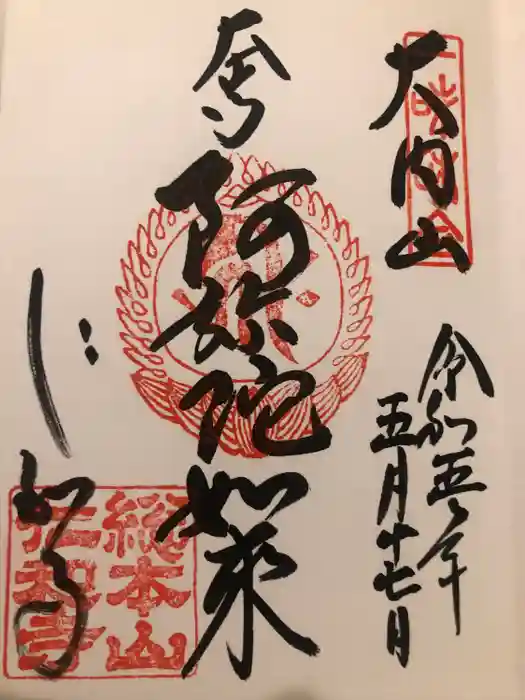 大内山
令和五年
五月十七日
奉
阿弥陀如来
仁和寺
総本山
仁和寺